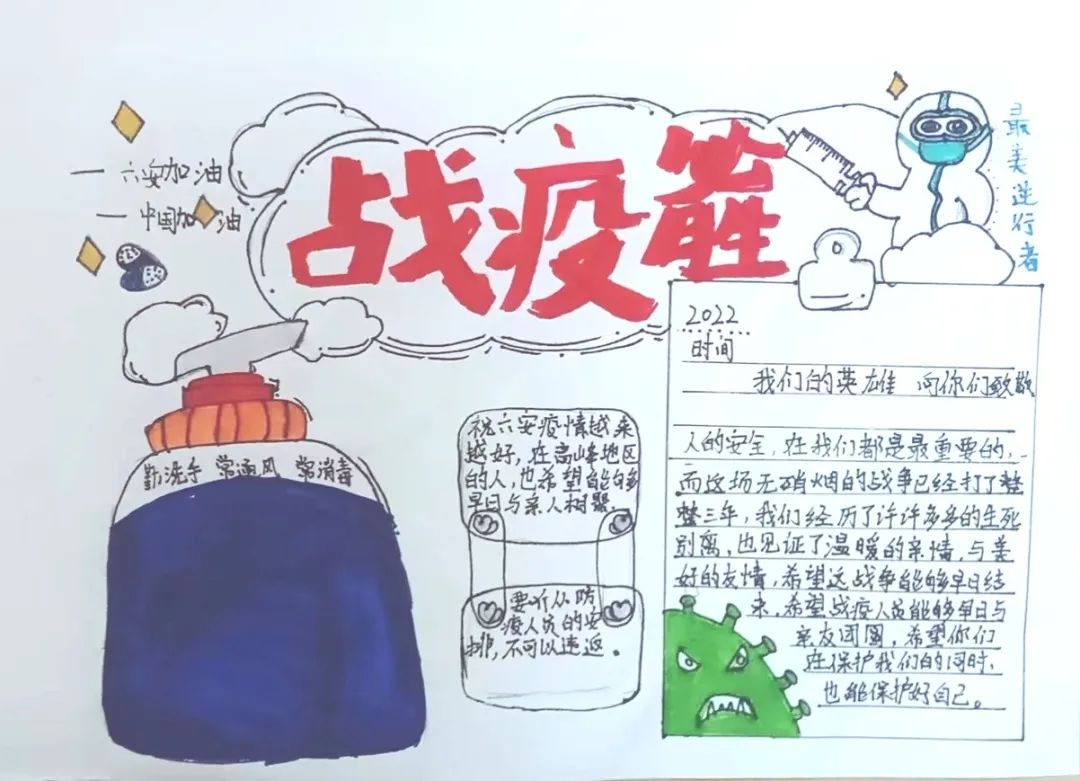 战疫
最美逆行者
一 六安加油
一 中国加油
勤洗手 常通风 常消毒
祝六安疫情越来
越好,在高峰地区
的人,也希望能够
早日与亲人相聚.
要听从防
疫人员的安
排,不可以违返。
2022
时间
我们的英雄 向你们致敬
人的安全,在我们都是最重要的,
而这场无硝烟的战争已经打了整
整三年,我们经历了许许多多的生死
别离,也见证了温暖的亲情,与美
好的友情,希望这战争能够早日结
束,希望战疫人员能够早日与
亲友团圆,希望你们
在保护我们的同时,
也能保护好自己。